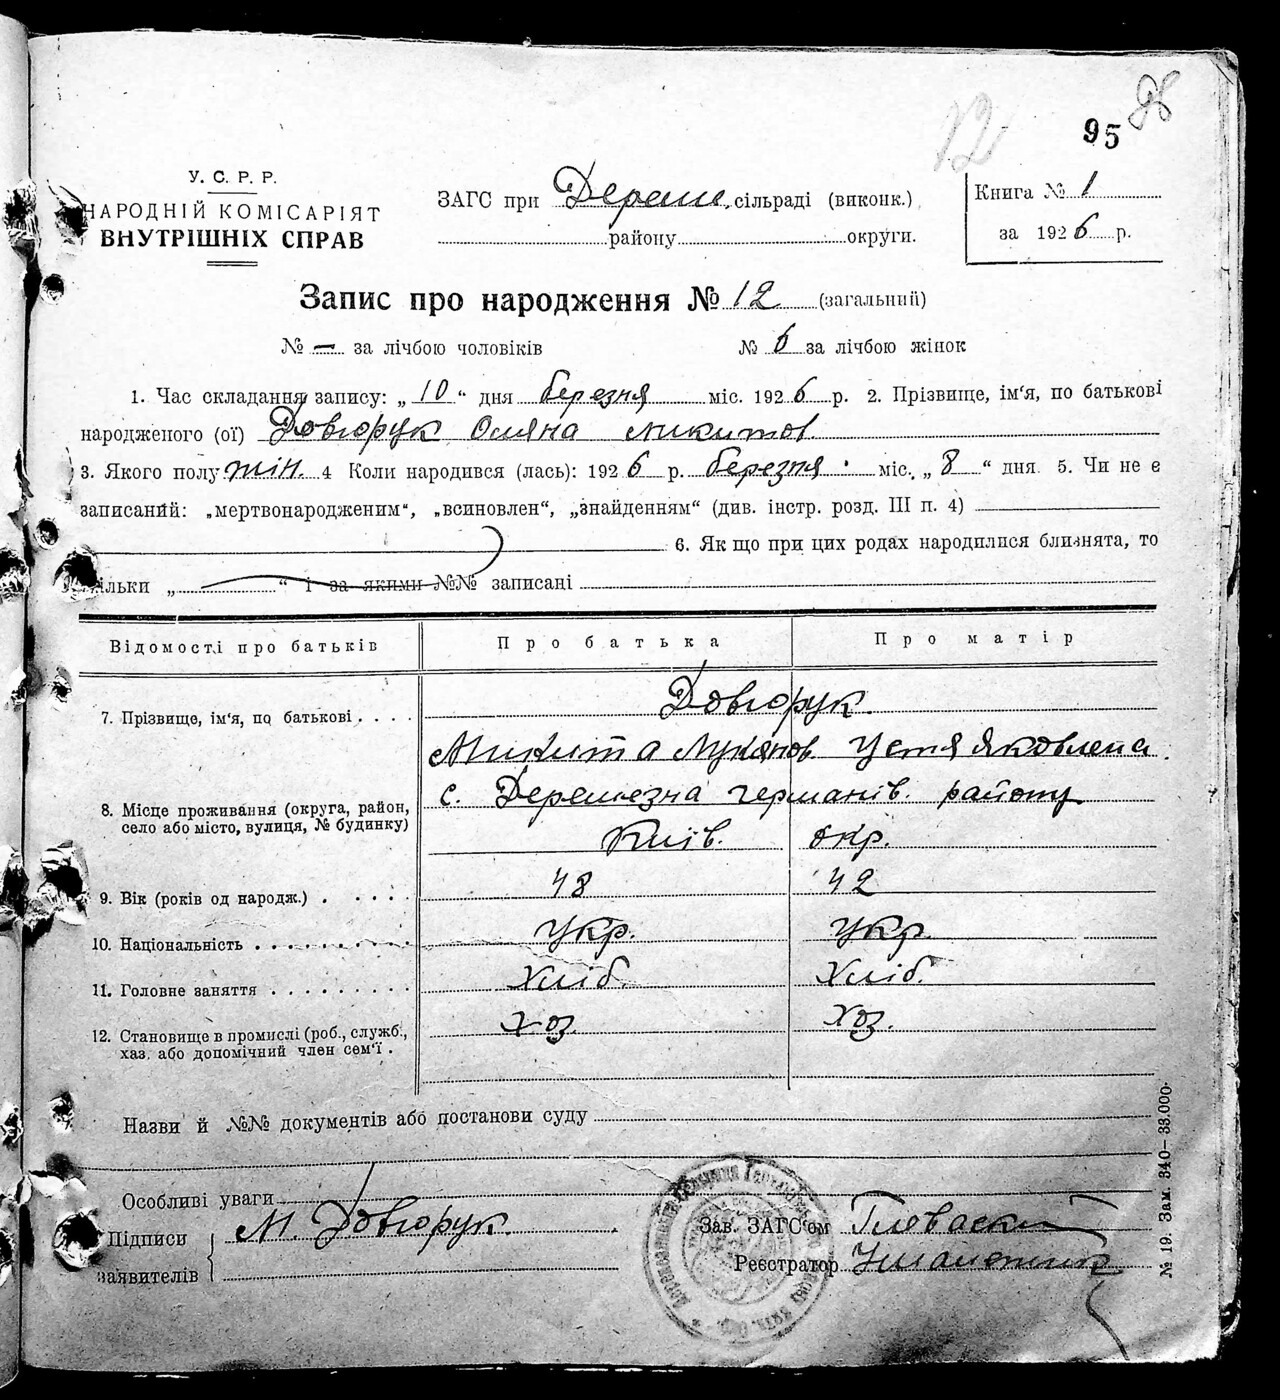 12 95 98
У. С. Р. Р.
НАРОДНІЙ КОМІСАРІЯТ
ВНУТРІШНІХ СПРАВ
ЗАГС при Дерем. сільраді (виконк.)
району округи.
Книга № 1
за 1926 р.
Запис про народження № 12 (загальний)
№ — за лічбою чоловіків № 6 за лічбою жінок
1. Час складання запису: „ 10 “ дня березня міс. 1926 р. 2. Прізвище, ім‘я, по батькові
народженого (ої) Довгорук Оляна Микитов.
3. Якого полу жін. 4 Коли народився (лась): 1926 р. березня міс. „ 8 “ дня. 5. Чи не є
записаний: „мертвонародженим“, „всиновлен“, „знайденням“ (див. інстр. розд. III п. 4)
6. Як що при цих родах народилися близнята, то
скільки „ “ і за якими №№ записані
Відомості про батьків Про батька Про матір
7. Прізвище, ім‘я, по батькові Довгорук.
Микита Лукянов. Устя Яковлева.
8. Місце проживання (округа, район, село або місто, вулиця, № будинку) с. Деремезна германів. району
Київ. окр.
9. Вік (років од народж.) 48 42
10. Національність Укр. Укр.
11. Головне заняття Хліб. Хліб.
12. Становище в промислі (роб., служб., хаз. або допомічний член сем‘ї. Хоз. Хоз.
Назви й №№ документів або постанови суду
Особливі уваги
Підписи М. Довгорук.
заявителів
Зав. ЗАГС‘ом
Реєстратор
№ 19. Зам. 340—33.000.